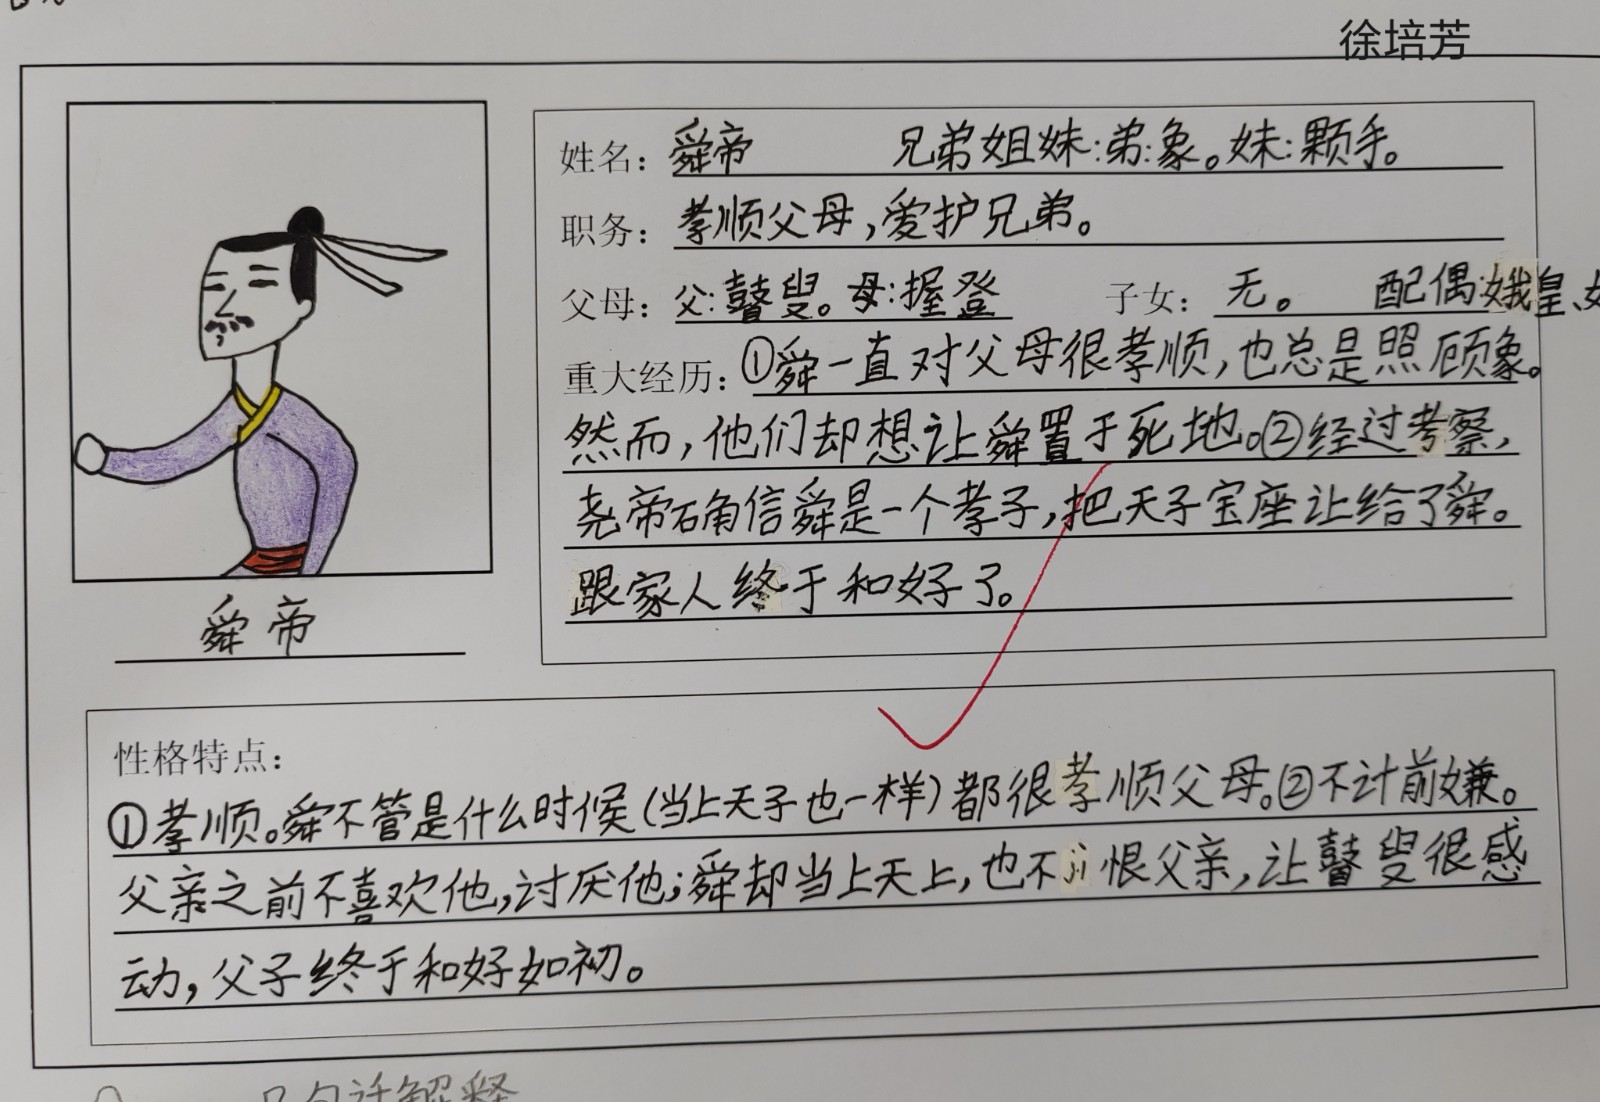 徐培芳
姓名：舜帝 兄弟姐妹:弟:象。妹:颗手。
职务：孝顺父母，爱护兄弟。
父母：父:瞽叟。母:握登 子女：无。 配偶:娥皇、
重大经历：①舜一直对父母很孝顺，也总是照顾象。
然而，他们却想让舜置于死地。②经过考察，
尧帝确信舜是一个孝子，把天子宝座让给了舜。
跟家人终于和好了。
舜帝
性格特点：
①孝顺。舜不管是什么时候（当上天子也一样）都很孝顺父母。②不计前嫌。
父亲之前不喜欢他，讨厌他；舜却当上天上，也不恨父亲，让瞽叟很感
动，父子终于和好如初。
几句话解释